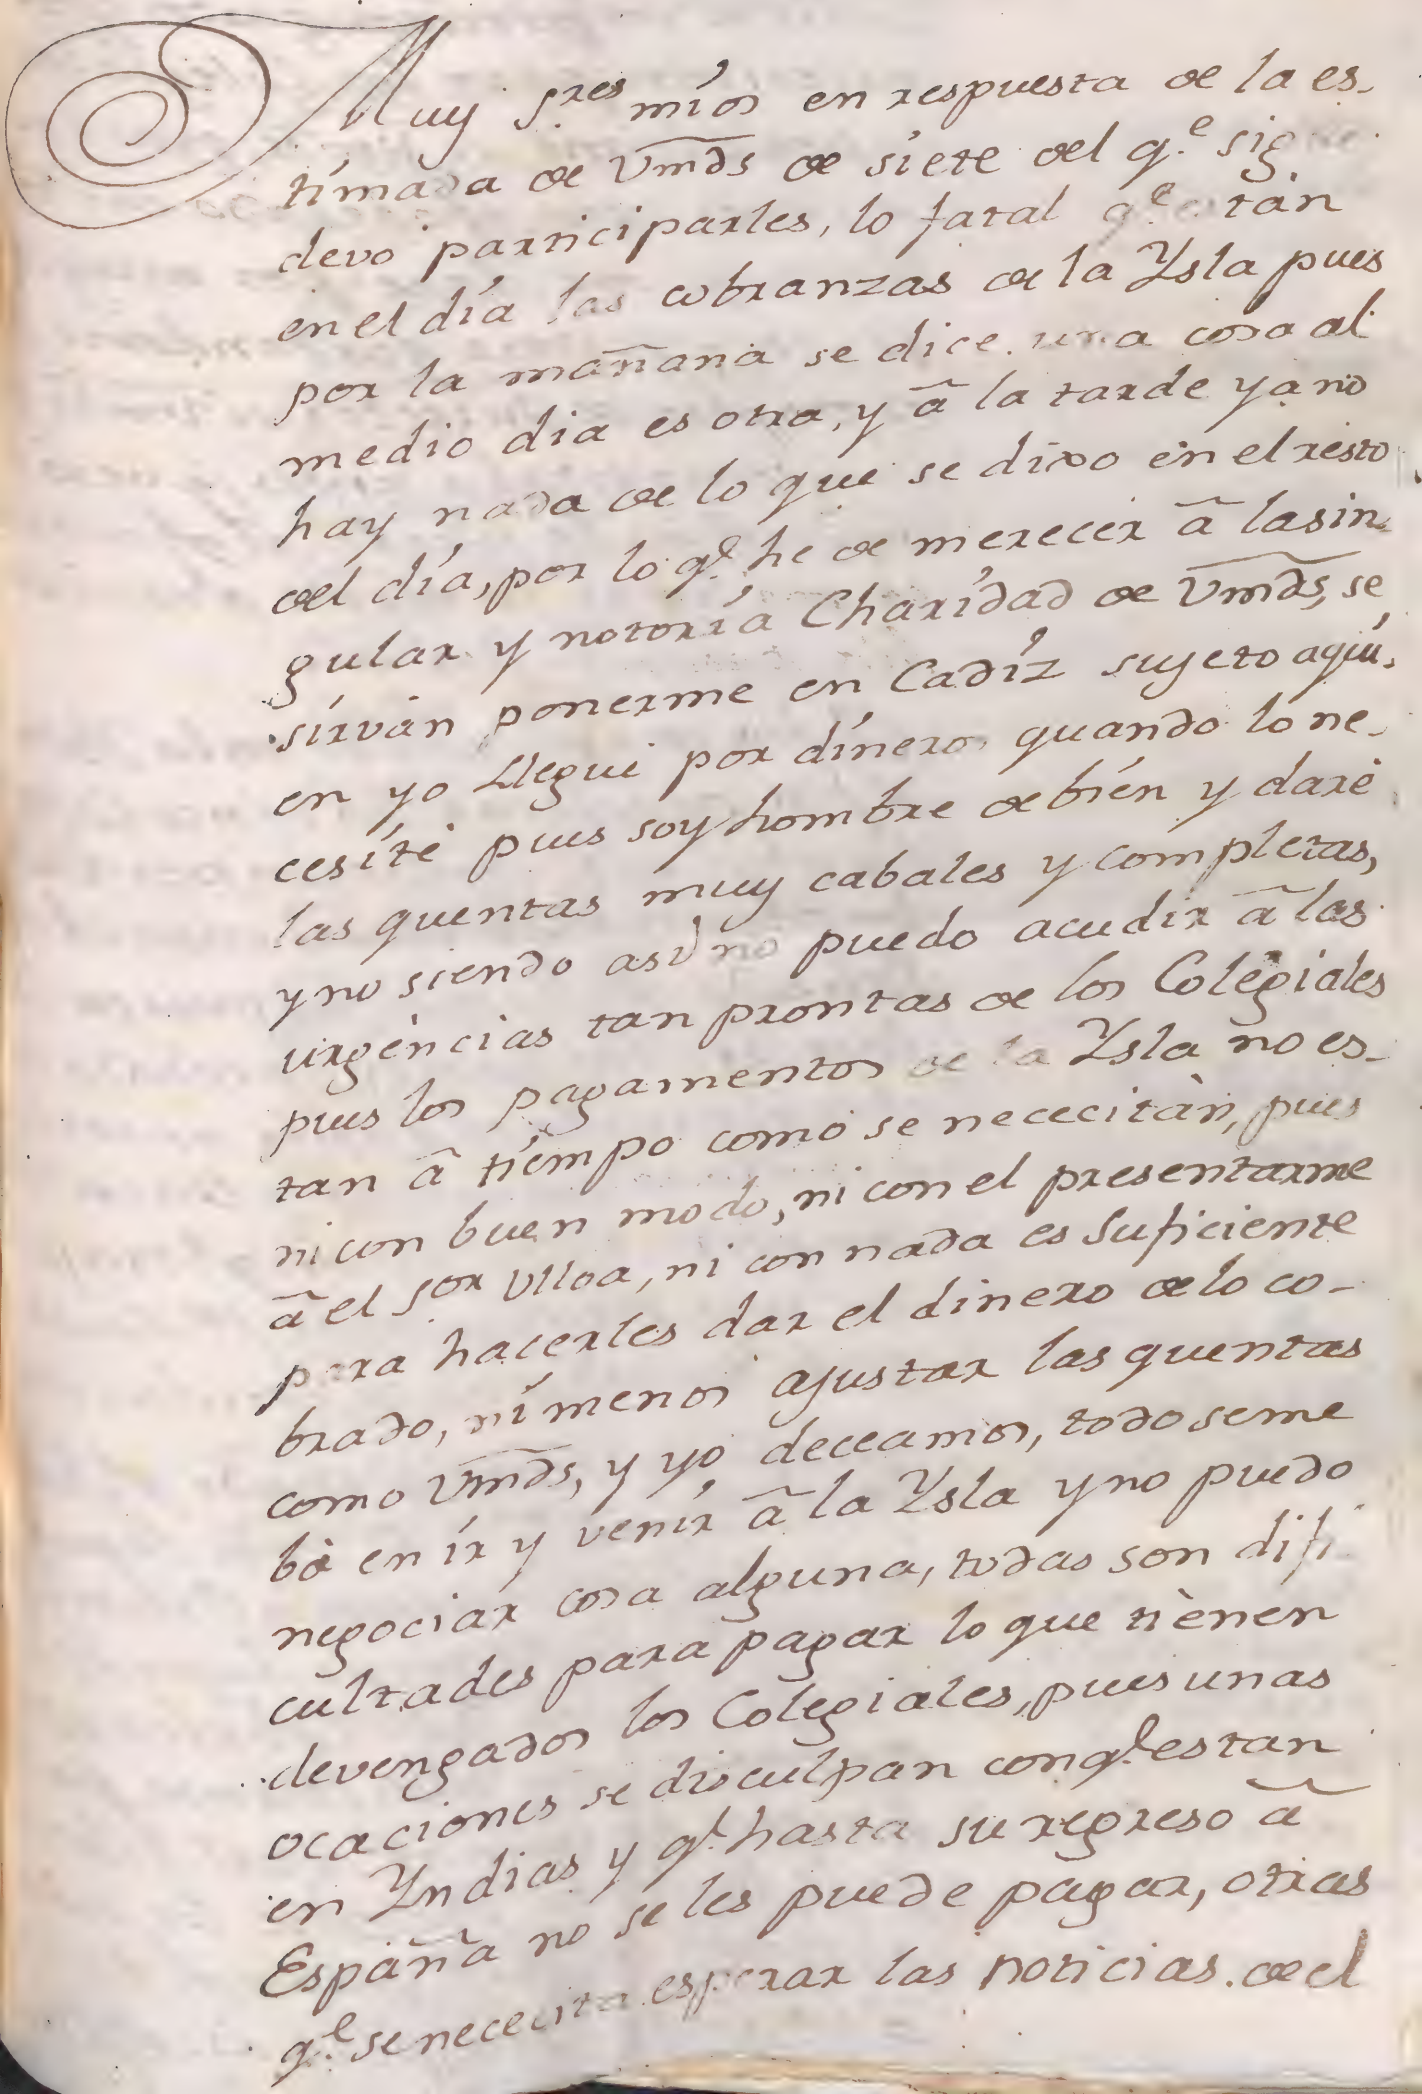 Muy S.res míos en respuesta de la es-
tímada de Vmds de síete del q.e sigue
devo participarles, lo fatal q.e estàn
en el día las cobranzas de la Ysla pues
por la mañana se dice una cosa al
medio dia es otra, y â la tarde ya no
hay nada de lo que se dixo en el resto
del día, por lo q.e he de merecer â la sin-
gular y notoría Charídad de Vmds, se
sírvan ponerme en Cadíz sujeto aqui-
en yo Llegue por dínero, quando lo ne-
cesíte pues soy hombre de bíen y daré
las quentas muy cabales y completas,
y no siendo así no puedo acudir â las
urgencias tan prontas de los Colegiales
pues los pagamentos de la Ysla no es-
tan â tíempo como se nececitàn, pues
ni con buen modo, ni con el presentarme
â el S.or Ulloa, ni con nada es suficiente
para hacerles dar el dinero de lo co-
brado, ní menos ajustar las quentas
como Vmds, y yo deceamos, todo se me
bà en ír y venír â la Ysla y no puedo
negociar cosa alguna, todas son difi-
cultades para pagar lo que tienen
devengados los Colegiales, pues unas
ocaciones se disculpan con q.e estan
en Yndias y q.e hasta su regreso â
España no se les puede pagar, otras
q.e se nececita esperar las noticias de el